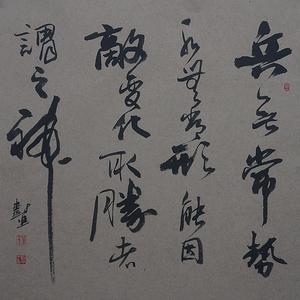 兵無常勢
水無常形能因
敵變化取勝者
謂之神